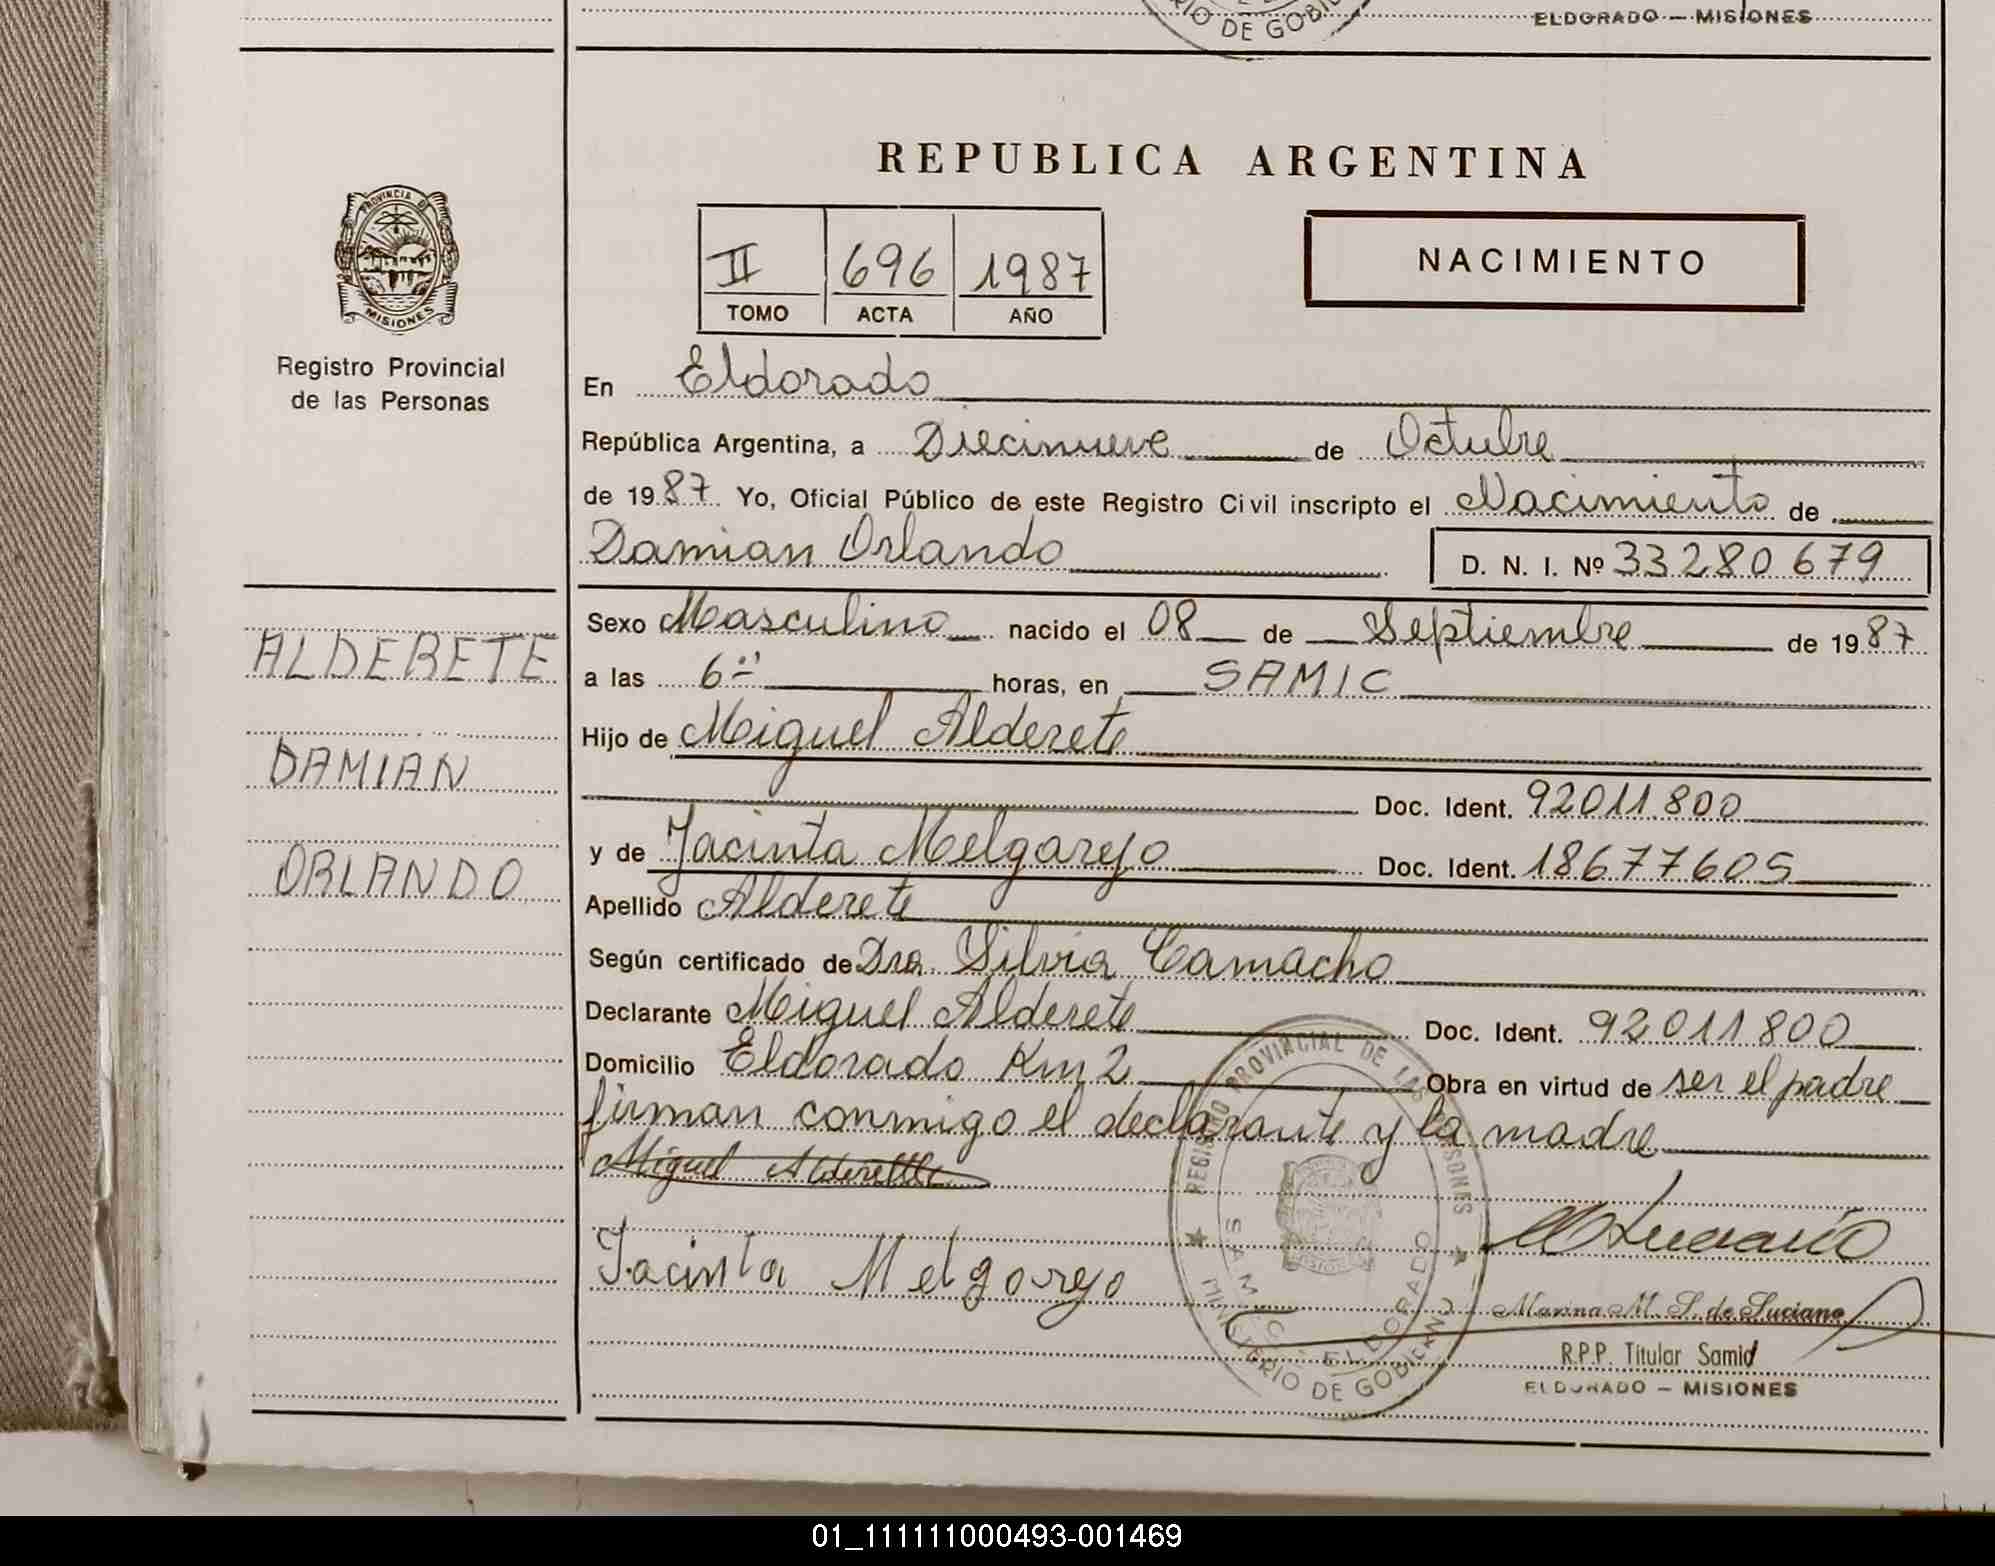 MINISTERIO DE GOBIERNO
ELDORADO — MISIONES
PROVINCIA DE
MISIONES
Registro Provincial
de las Personas
REPUBLICA ARGENTINA
II 696 1987
TOMO ACTA AÑO
NACIMIENTO
En Eldorado
República Argentina, a Diecinueve de Octubre
de 1987 Yo, Oficial Público de este Registro Civil inscripto el Nacimiento de
Damian Orlando D. N. I. Nº 33280679
Sexo Masculino nacido el 08 de Septiembre de 1987
a las 6 horas, en SAMIC
Hijo de Miguel Alderete
Doc. Ident. 92011.800
y de Jacinta Melgarejo Doc. Ident. 18677605
Apellido Alderete
Según certificado de Dra. Silvia Camacho
Declarante Miguel Alderete Doc. Ident. 92011800
Domicilio Eldorado Km 2 Obra en virtud de ser el padre
firman conmigo el declarante y la madre
Miguel Alderette
Jacinta Melgorejo
ALDERETE
DAMIAN
ORLANDO
REGISTRO PROVINCIAL DE LAS PERSONAS
MISIONES
SAMIC - ELDORADO
MINISTERIO DE GOBIERNO
Marina M. S. de Luciano
R.P.P. Titular Samic
ELDORADO — MISIONES
01_111111000493-001469